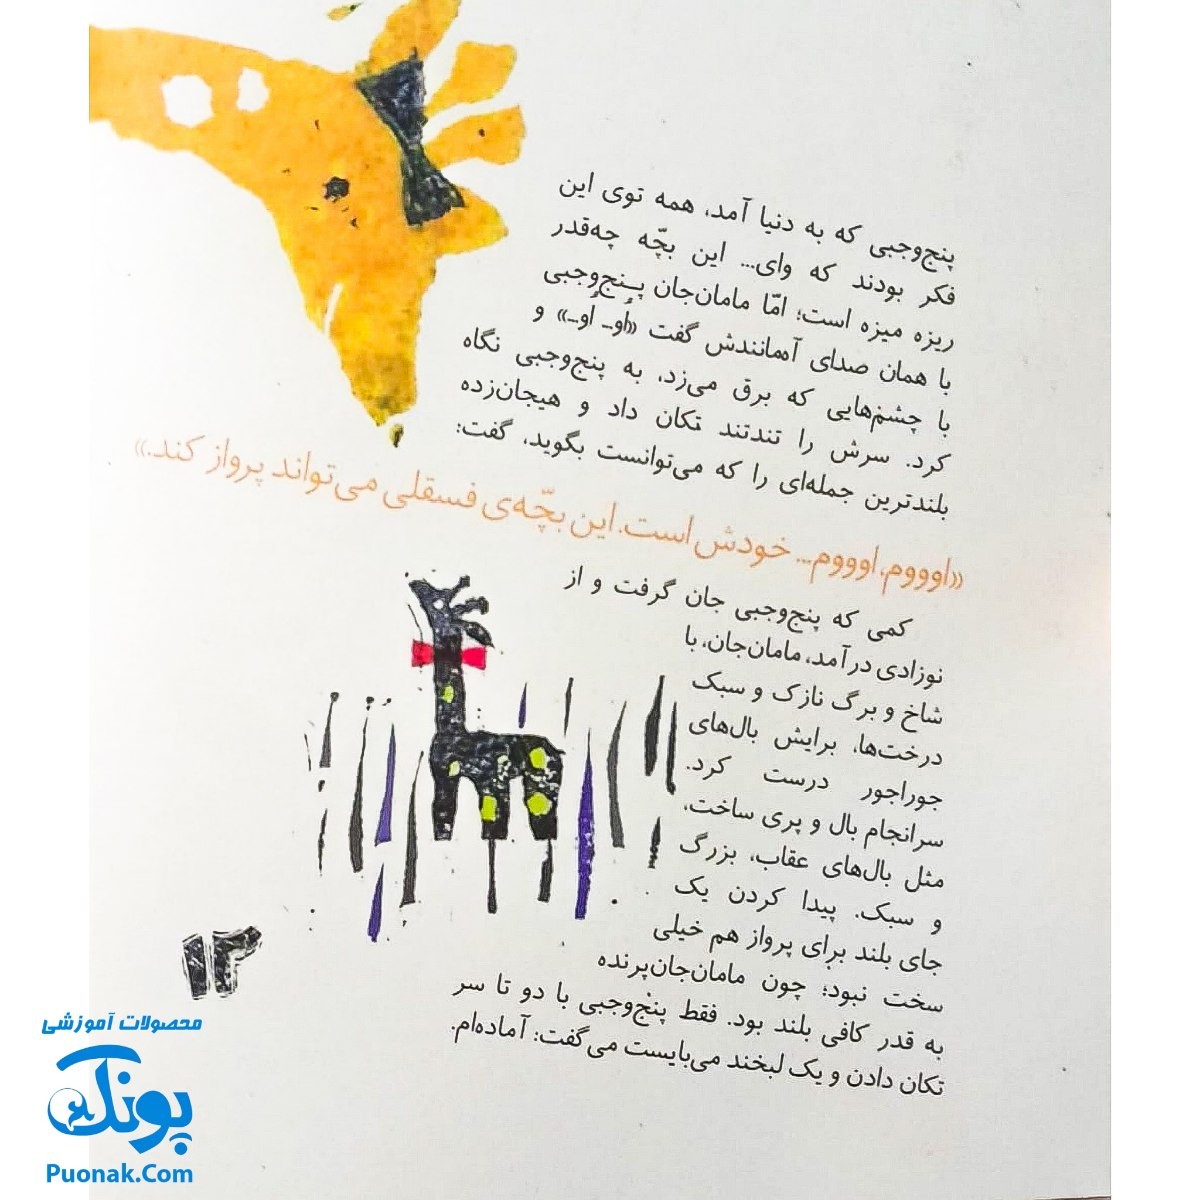 پنج‌وجبی که به دنیا آمد، همه توی این
فکر بودند که وای... این بچّه چه‌قدر
ریزه میزه است؛ امّا مامان‌جان پنج‌وجبی
با همان صدای آهمانندش گفت «اوُ- اوُ-» و
با چشم‌هایی که برق می‌زد، به پنج‌وجبی نگاه
کرد. سرش را تندتند تکان داد و هیجان‌زده
بلندترین جمله‌ای را که می‌توانست بگوید، گفت:
«اوووم، اوووم... خودش است. این بچّه‌ی فسقلی می‌تواند پرواز کند.»
کمی که پنج‌وجبی جان گرفت و از
نوزادی درآمد، مامان‌جان، با
شاخ و برگ نازک و سبک
درخت‌ها، برایش بال‌های
جوراجور درست کرد.
سرانجام بال و پری ساخت،
مثل بال‌های عقاب، بزرگ
و سبک. پیدا کردن یک
جای بلند برای پرواز هم خیلی
سخت نبود؛ چون مامان‌جان‌پرنده
به قدر کافی بلند بود. فقط پنج‌وجبی با دو تا سر
تکان دادن و یک لبخند می‌بایست می‌گفت: آماده‌ام.
۱۳
محصولات آموزشی
پونک
Puonak.Com